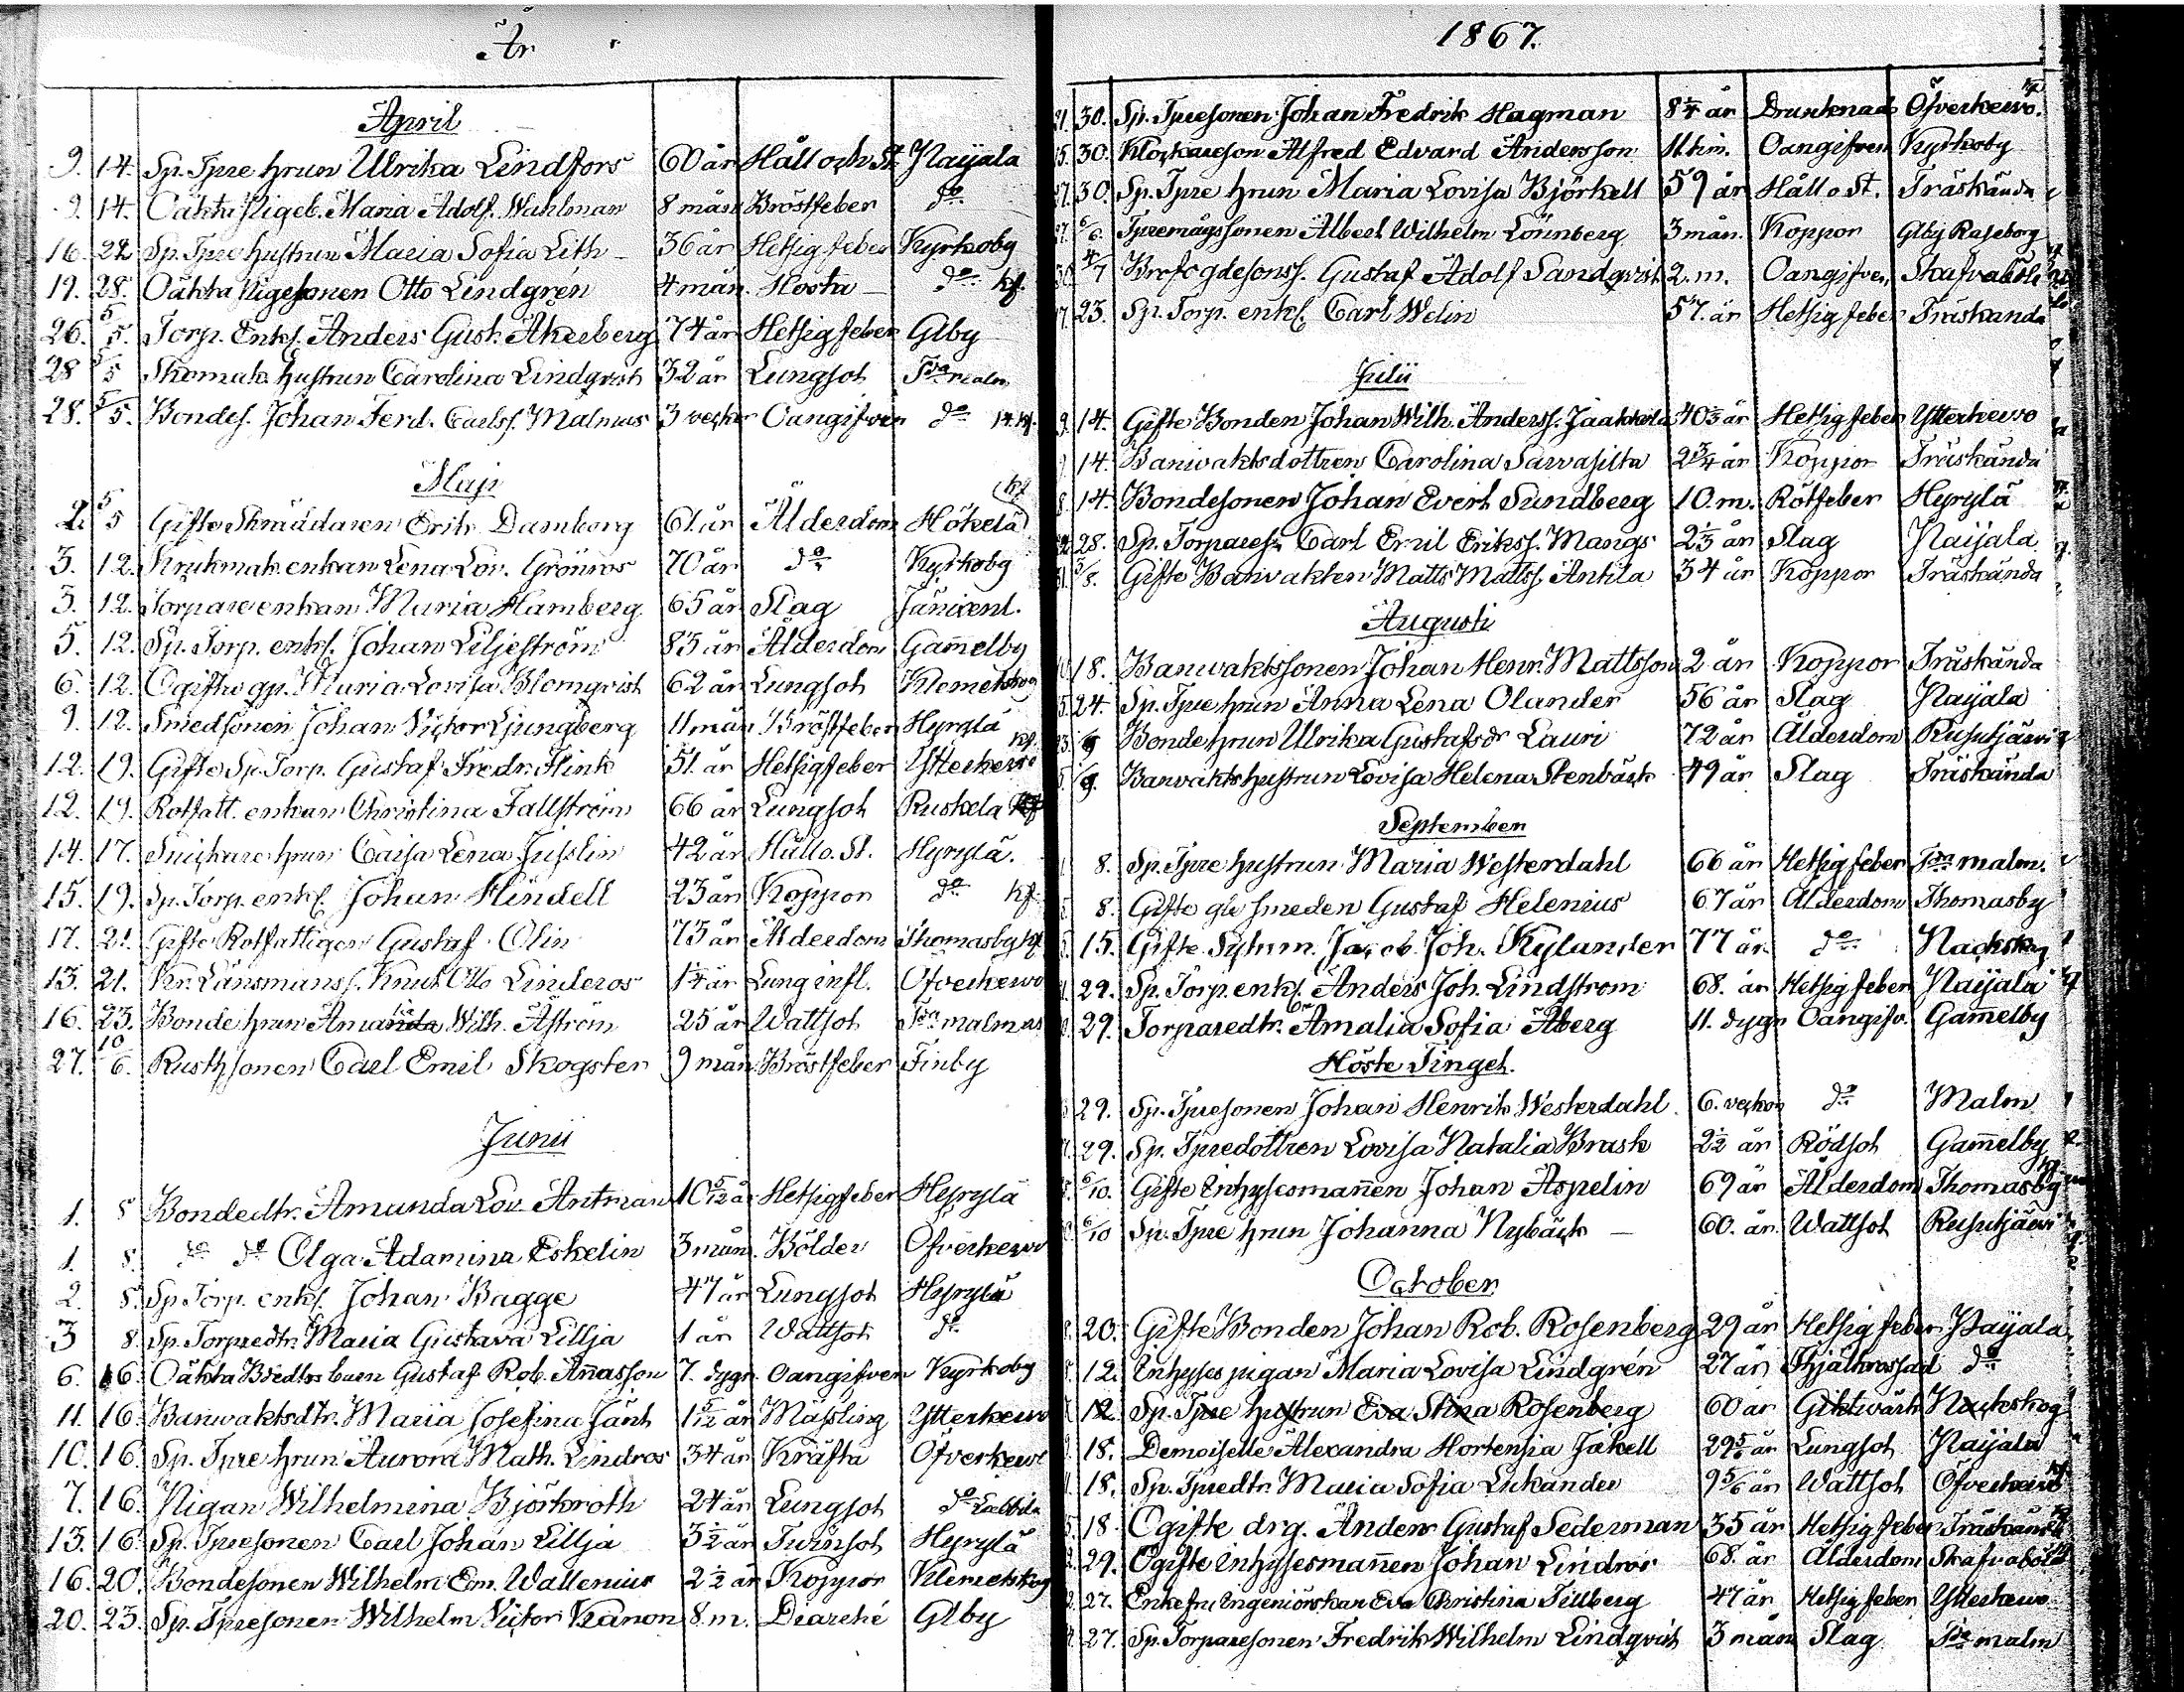 År
April
9. 14. Sp. Tpre hrun Ulrika Lindfors 60 år Håll och St. Naijala
9. 14. Oäkta Pigeb. Maria Adolf. Wahlman 8 mån Bröstfeber do
16. 22. Sp. Tpre hustrun Maria Sofia Lith 36 år Hetsig feber Kyrkoby
19. 28. Oäkta Pigesonen Otto Lindgrén 4 mån. Hosta do kf.
26. 5/5. Torp. Enkl. Anders Gust. Åkerberg 74 år Hetsig feber Glby
28 5/5 Skomak. hustrun Carolina Lindqvist 32 år Lungsot Tra malm
28. 5/5. Bondes. Johan Ferd. Carlss. Malmus 3 veckor Oangifven do
Maji
2. 5/5 Gifte Skräddaren Erik Damborg 61. år Ålderdom Hökelä kf
3. 12. Krukmak. enkan Lena Lov. Grönros 70 år do Kyrkoby
3. 12. Torpare enkan Maria Hamberg 65 år Slag Jänixenl.
5. 12. Sp. Torp. enkl. Johan Liljeström 83 år Ålderdom Gam̄elby
6. 12. Ogifte gp. Maria Lovisa Blomqvist 62 år Lungsot Klemetskog
9. 12. Smedsonen Johan Victor Ljungberg 11 mån Bröstfeber Hyrylä
12. 19. Gifte Sp. Torp. Gustaf Fredr. Flink 51. år Hetsigfeber Ytterkerwo kf.
12. 19. Rotfatt. enkan Christina Fallström 66 år Lungsot Ruskela kf
14. 17. Snickare hrun Caisa Lena Juslin 42 år Håll o. St. Hyrylä.
15. 19. Sp. Torp. enkl. Johan Hindell 23 år Koppor do kf.
17. 21. Gifte Rotfattigen Gustaf Olin 73 år Ålderdom Thomasby kf
13. 21. Kr. Länsmanss. Knut Otto Linderos 1 1/4 år Lung infl. Öfverkerwo
16. 23. Bonde hrun Amanda Wilh. Åström 25 år Wattsot Tra malmen
27. 10/6. Rusth. sonen Carl Emil Skogster 9 mån Bröstfeber Finby
Junii
1. 8 Bondedtr. Amanda Lov. Antman 10 5/12 år Hetsigfeber Hyrylä
1. 8. do do Olga Adamina Eskelin 3 mån. Bölder Öfverkerwo
2. 8. Sp Torp. enkl. Johan Bagge 47 år Lungsot Hyrylä
3 8. Sp. Torpredtr. Maria Gustava Lillja 1 år Wattsot do
6. 16. Oäkta Bredlös barn Gustaf Rob. Añasson 7. dygn. Oangifven Kyrkoby
11. 16. Banwaktsdtr. Maria Josefina Jänt 1 5/12 år Mässling Ytterkerwo
10. 16. Sp. Tpre hrun Aurora Math. Lindros 34 år Kräfta Öfverkerwo
7. 16. Pigan Wilhelmina Björkroth 24 år Lungsot do
13. 16. Sp. Tpresonen Carl Johan Lillja 3 1/2 år Twinsot Hyrylä
16. 20. Bondesonen Wilhelm Em. Wallenius 2 1/2 år Koppor Klemetskog
20. 23. Sp. Tpresonen Wilhelm Victor Kanon 8. m. Diarehé Glby
1867.
21. 30. Sp. Tpresonen Johan Fredrik Hagman 8 1/4 år Drunknad Öfverkerwo. kf
25. 30. Klockareson Alfred Edvard Andersson 11 tim. Oangifven Kyrkoby
27. 30. Sp. Tpre hrun Maria Lovisa Björkell 59 år Håll o St. Träskända
27. 6/6. Tpremågssonen Albert Wilhelm Lönnberg 3 mån. Koppor Glby Raseborg
30 4/7 Brofogdesonss. Gustaf Adolf Sandqvist 2. m. Oangifven Skafvaböle
17. 23. Sp. Torp. enkl. Carl Welin 57. år Hetsig feber Träskända
Julii
9. 14. Gifte Bonden Johan Wilh. Anderss. Jaakkola 40 1/3 år Hetsig feber Ytterkerwo
14. Banwaktsdottren Carolina Sarvasilta 2 3/4 år Koppor Träskända
8. 14. Bondesonen Johan Evert Sundberg 10. m. Rötfeber Hyrylä
28. Sp. Torpares. Carl Emil Erikss. Mangs 2 1/3 år Slag Naijala
31. 3/8. Gifte Banvakten Matts Mattss. Antila 34 år Koppor Träskända
Augusti
18. Banwaktssonen Johan Henr. Mattsson 2 år Koppor Träskända
24. Sp. Tpre hrun Anna Lena Olander 56 år Slag Naijala
1/9 Bonde hrun Ulrika Gustafsdr Lauri 72 år Ålderdom Rusutjärvi
1/9. Banvakts hustrun Lovisa Helena Stenbäck 49 år Slag Träskända
September
8. Sp. Tpre hustrun Maria Westerdahl 66 år Hetsig feber Tra malm.
8. Gifte gle smeden Gustaf Helenius 67 år Ålderdom Thomasby
15. Gifte Sytnm. Jacob Joh. Kylander 77 år. do Nackskog
29. Sp. Torp. enkl. Anders Joh. Lindström 68. år Hetsig feber Naijala kf
29. Torparedtr. Amalia Sofia Åberg 11. dygn Oangifv. Gam̄elby
Höste Tinget.
29. Sp. Tpresonen Johan Henrik Westerdahl 6. veckor do Malm
29. Sp. Tpredottren Lovisa Natalia Brask 2 1/2 år Rödsot Gam̄elby
6/10. Gifte Inhysesmañen Johan Aspelin 69 år Ålderdom Thomasby
6/10 Sp. Tpre hrun Johanna Nybäck 60. år. Wattsot Rusutjärvi
October
20. Gifte Bonden Johan Rob. Rosenberg 29 år Hetsig feber Naijala
12. Inhyses pigan Maria Lovisa Lindgrén 27 år Ihjälkrossad do
12. Sp. Tpre hustrun Eva Stina Rosenberg 60 år Giktvärk Nackskog
18. Demoiselle Alexandra Hortensia Jakell 29 5/6 år Lungsot Naijala
18. Sp. Tpredtr. Maria Sofia Lukander 9 5/6 år Wattsot Öfverkerwo
18. Ogifte drg. Anders Gustaf Sederman 35 år Hetsig feber Träskända
29. Ogifte Inhysesmañen Johan Lindros 68. år Ålderdom Skafvaböle
27. Enkefru Ingeniörskan Eva Christina Tillberg 47 år Hetsig feber Ytterkerwo
27. Sp. Torparesonen Fredrik Wilhelm Lindqvist 3 mån Slag Tra malm